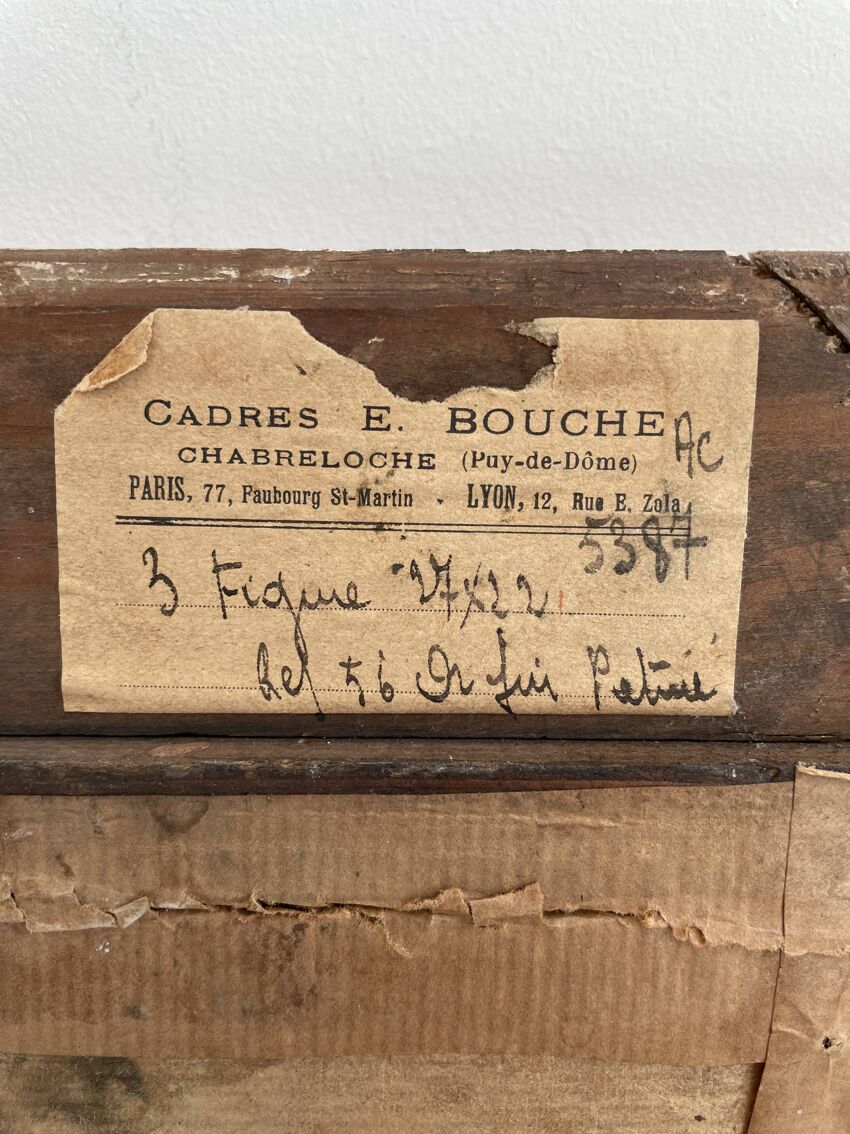 CADRES E. BOUCHE
Ac
CHABRELOCHE (Puy-de-Dôme)
PARIS, 77, Faubourg St-Martin - LYON, 12, Rue E. Zola
5387
3 Figure 27x22
Ref 56 Or fin Patiné